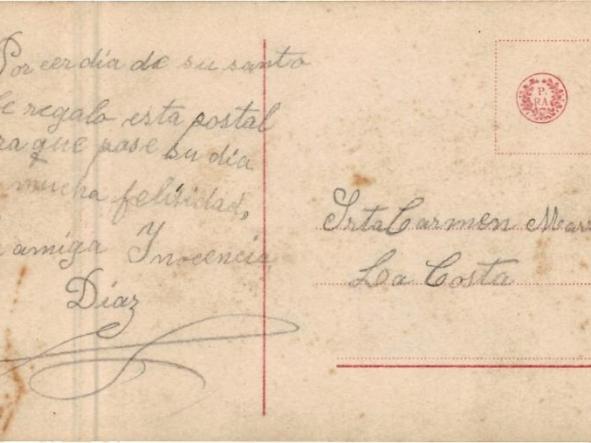 Por cer dia de su santo
le regalo esta postal
ra que pase su dia
mucha felisidad,
amiga Ynocencia
Diaz
P.
RA.
Srta Carmen Mar
La Costa